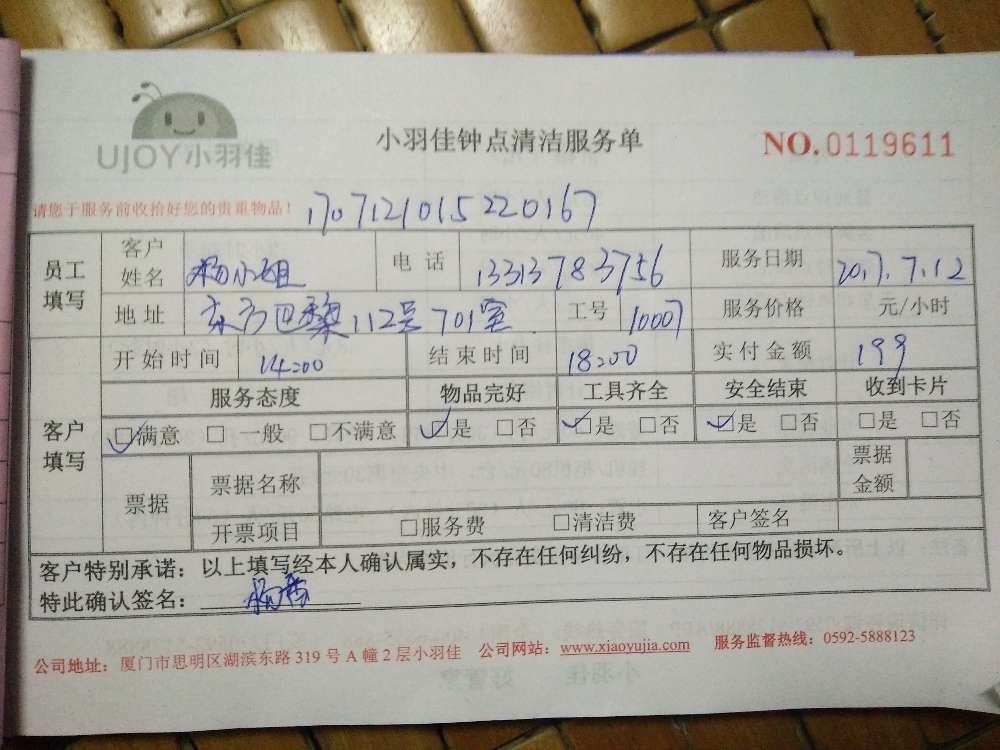 UJOY小羽佳
小羽佳钟点清洁服务单
NO.0119611
请您于服务前收拾好您的贵重物品！ 1707121015220167
员工填写 客户姓名 杨小姐 电话 13313783756 服务日期 2017.7.12
地址 东方巴黎112号701室 工号 10007 服务价格 元/小时
客户填写 开始时间 14:00 结束时间 18:00 实付金额 199
服务态度 物品完好 工具齐全 安全结束 收到卡片
☑满意 □一般 □不满意 ☑是 □否 ☑是 □否 ☑是 □否 □是 □否
票据 票据名称 票据金额
开票项目 □服务费 □清洁费 客户签名
客户特别承诺：以上填写经本人确认属实，不存在任何纠纷，不存在任何物品损坏。
特此确认签名：
公司地址：厦门市思明区湖滨东路319号A幢2层小羽佳 公司网站：www.xiaoyujia.com 服务监督热线：0592-5888123